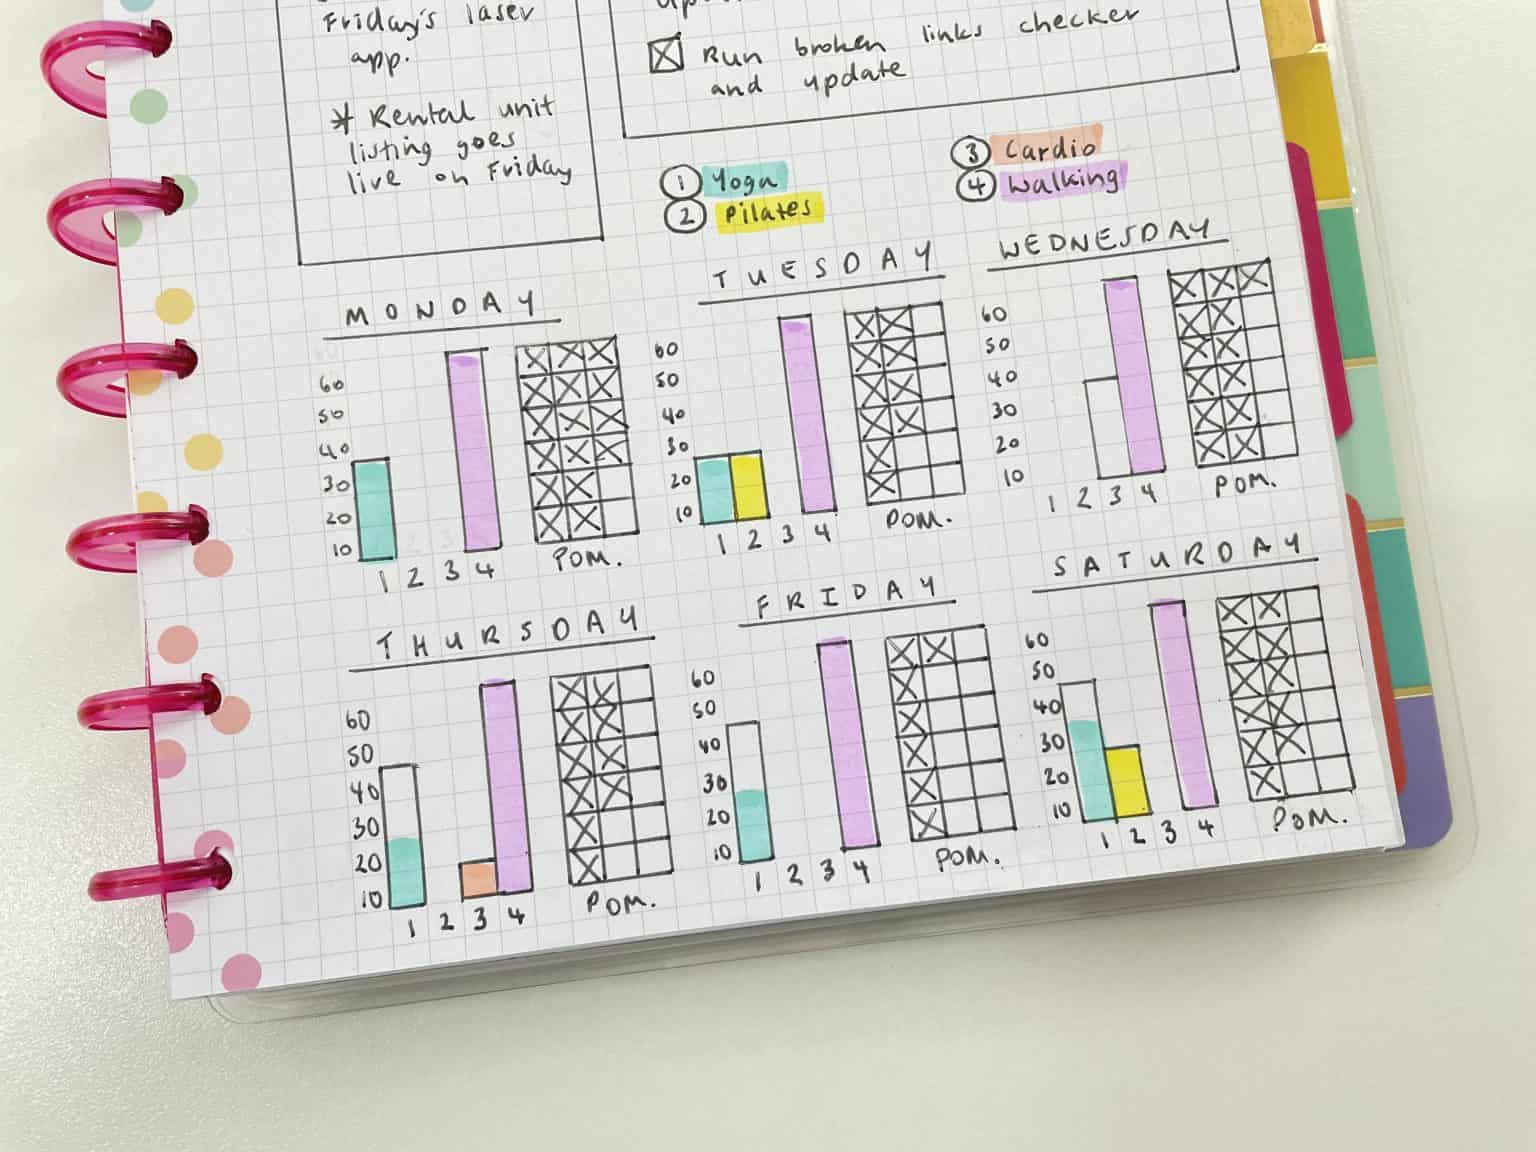 Friday's laser
app.
* Rental unit
listing goes
live on Friday
Run broken links checker
and update
1 Yoga
2 Pilates
3 Cardio
4 Walking
MONDAY
60
50
40
30
20
10
1 2 3 4
POM.
TUESDAY
60
50
40
30
20
10
1 2 3 4
POM.
WEDNESDAY
60
50
40
30
20
10
1 2 3 4
POM.
THURSDAY
60
50
40
30
20
10
1 2 3 4
POM.
FRIDAY
60
50
40
30
20
10
1 2 3 4
POM.
SATURDAY
60
50
40
30
20
10
1 2 3 4
POM.